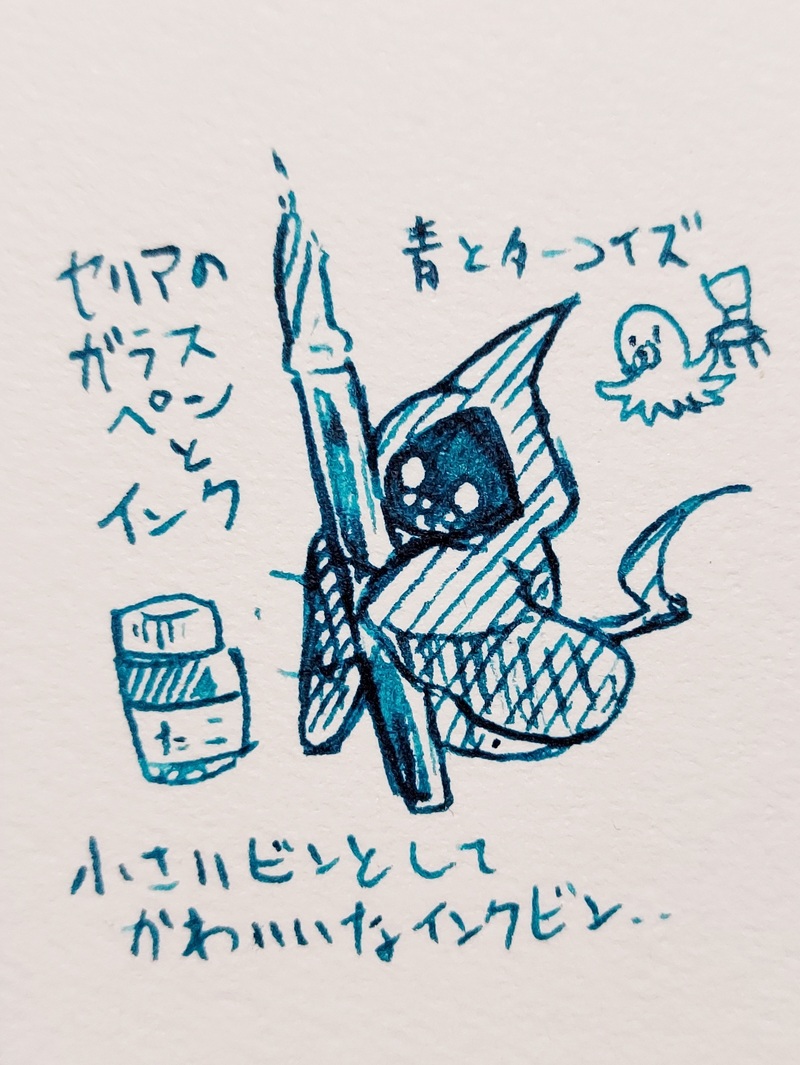 セリアの
ガラス
ペン
と
インク
青とターコイズ
たこ
小さいビンとして
かわいいなインクビン..